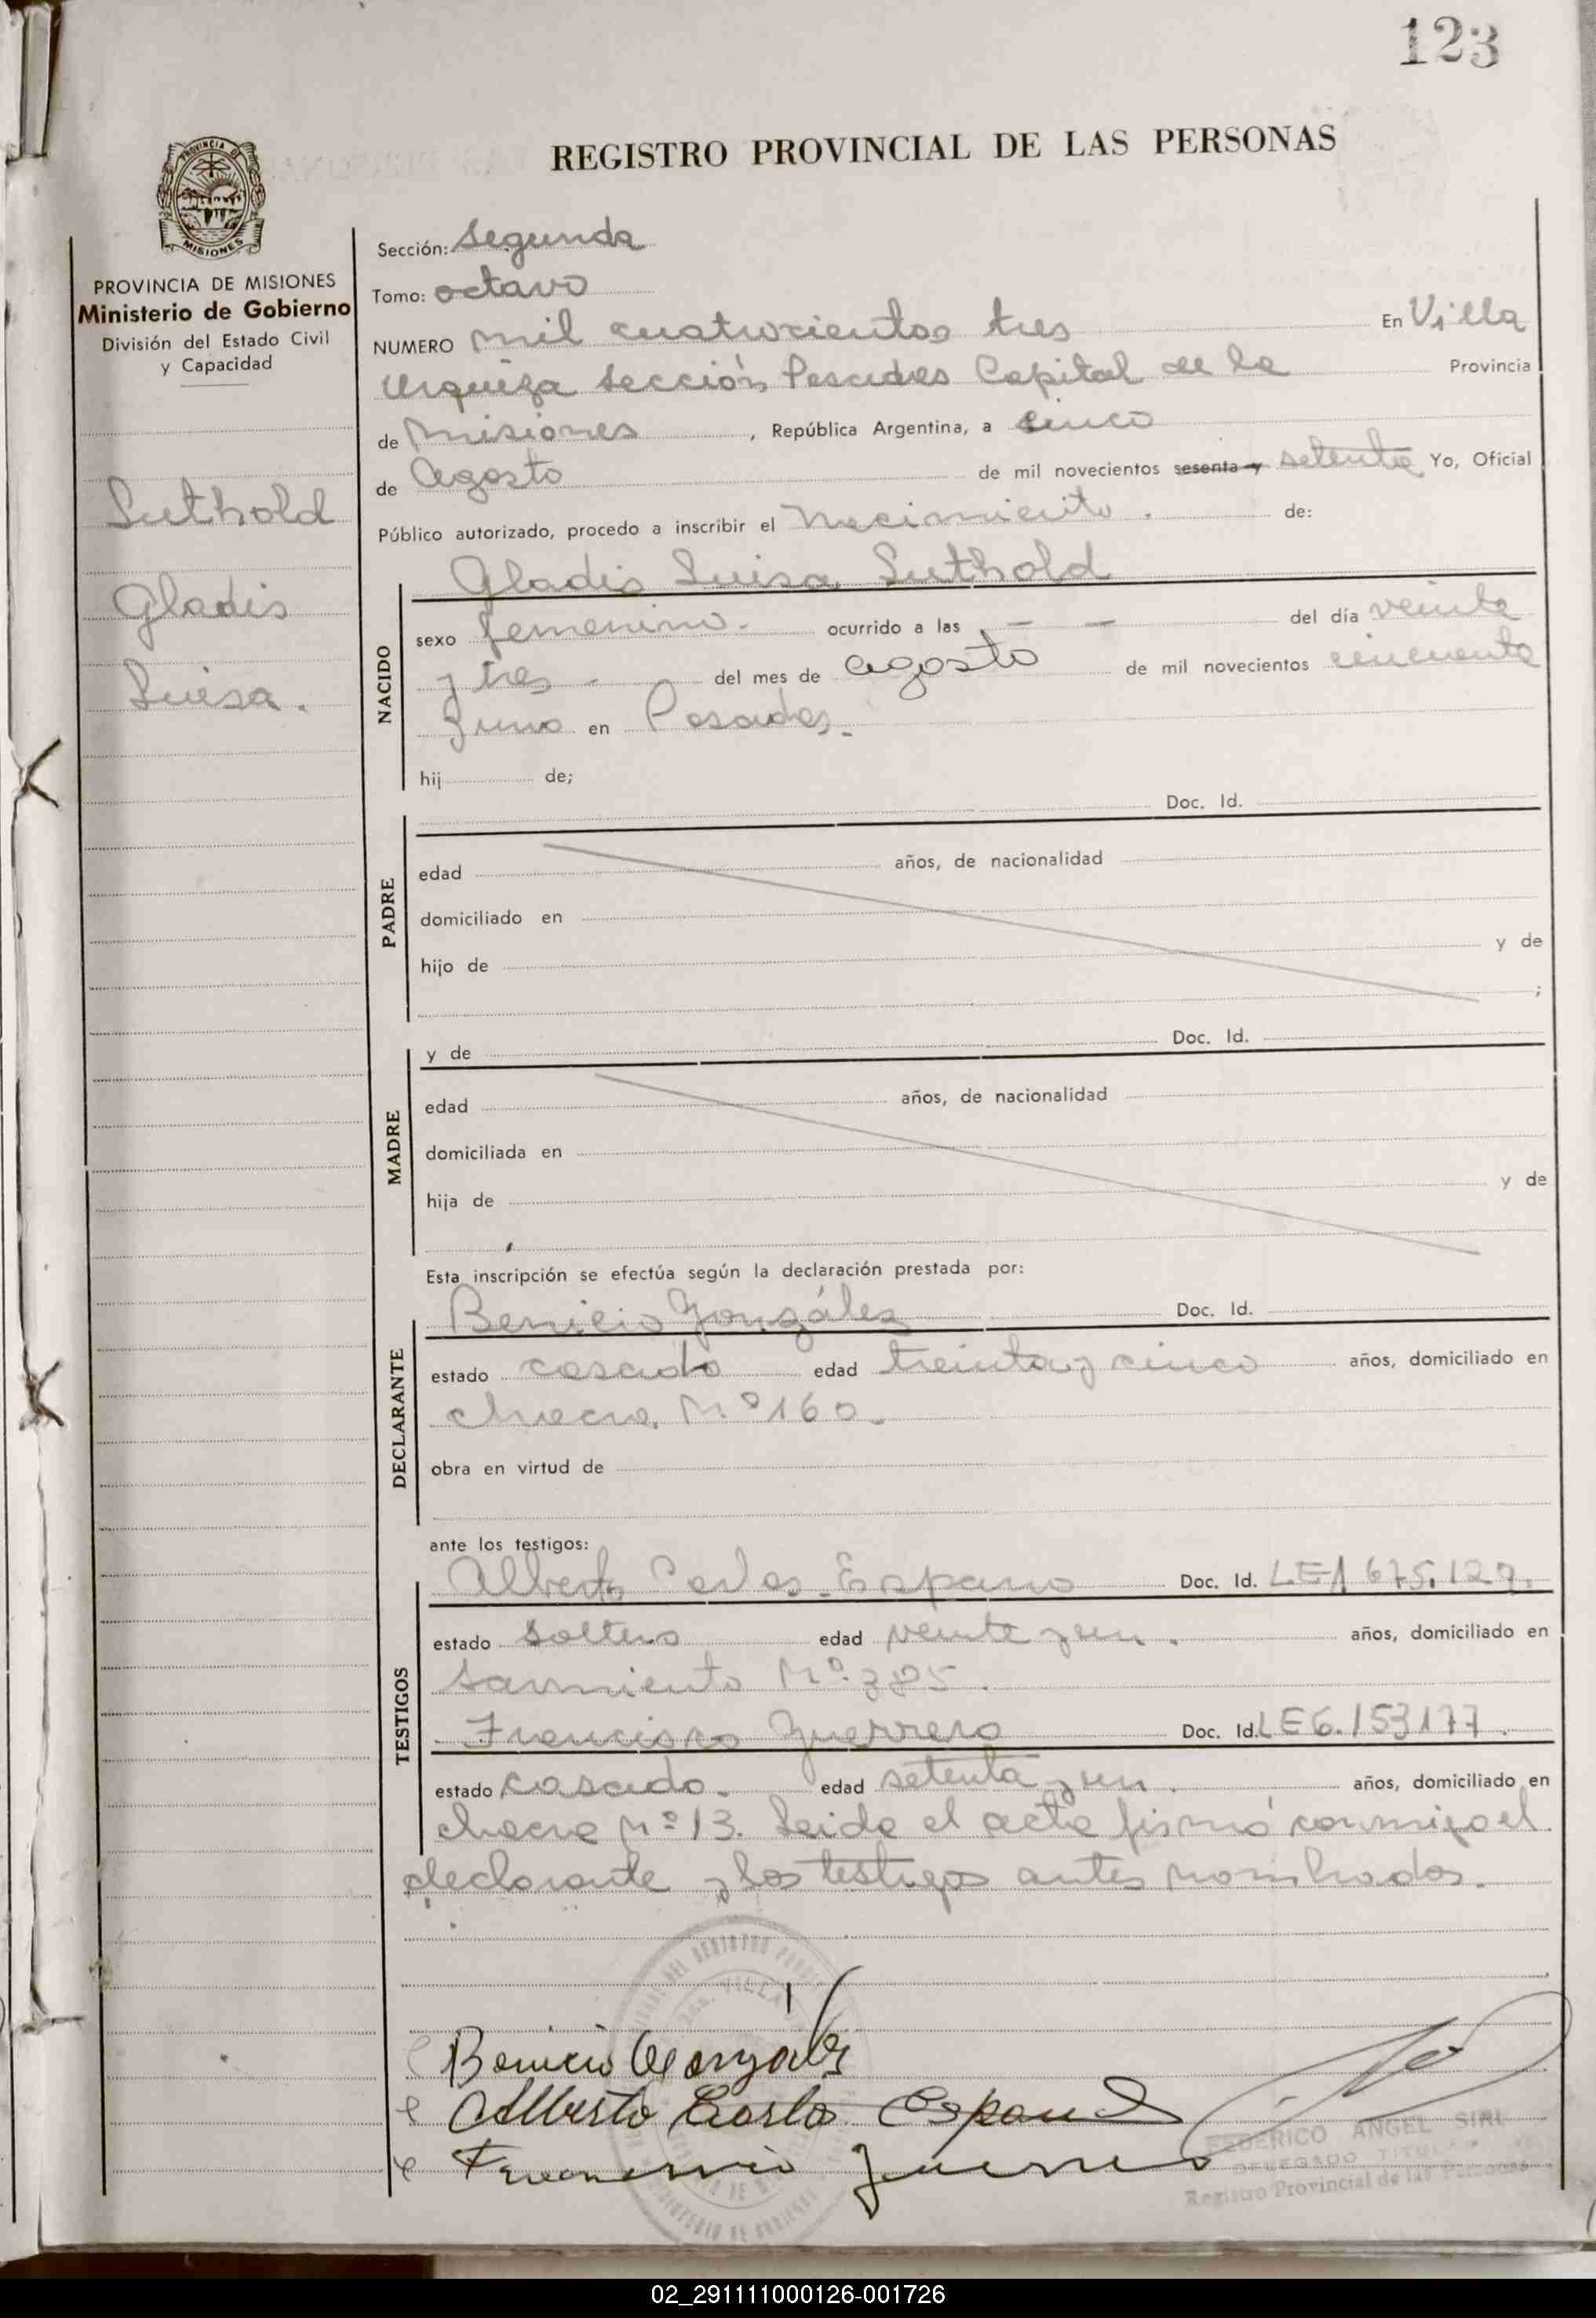 123
REGISTRO PROVINCIAL DE LAS PERSONAS
PROVINCIA DE
MISIONES
PROVINCIA DE MISIONES
Ministerio de Gobierno
División del Estado Civil
y Capacidad
Luthold
Gladis
Luisa.
Sección: Segunda
Tomo: octavo
NUMERO mil cuatrocientos tres En Villa
Urquiza Sección Posadas Capital de la Provincia
de Misiones, República Argentina, a cinco
de Agosto de mil novecientos sesenta y setenta Yo, Oficial
Público autorizado, procedo a inscribir el Nacimiento. de:
Gladis Luisa Luthold
NACIDO
sexo femenino. ocurrido a las — — del día veinte
y tres - del mes de agosto de mil novecientos cincuenta
y uno en Posadas.
hij de;
Doc. Id.
PADRE
edad años, de nacionalidad
domiciliado en
hijo de y de
;
y de Doc. Id.
MADRE
edad años, de nacionalidad
domiciliada en
hija de y de
Esta inscripción se efectúa según la declaración prestada por:
Benicio González Doc. Id.
DECLARANTE
estado casado edad treinta y cinco años, domiciliado en
chacra Nº 160.
obra en virtud de
ante los testigos:
Alberto Carlos Espano Doc. Id. LE1675.127.
TESTIGOS
estado soltero edad veinte y un. años, domiciliado en
Sarmiento Nº
Francisco Guerrero Doc. Id. LE6.153177.
estado casado. edad setenta y un. años, domiciliado en
chacra Nº 13. Leida el acta firmó conmigo el
declarante y los testigos antes nombrados.
Benicio Gonzalez
Alberto Carlos Espano
Francisco Guerrero
FEDERICO ANGEL SIRI
DELEGADO TITULAR
Registro Provincial de las Personas
02_291111000126-001726